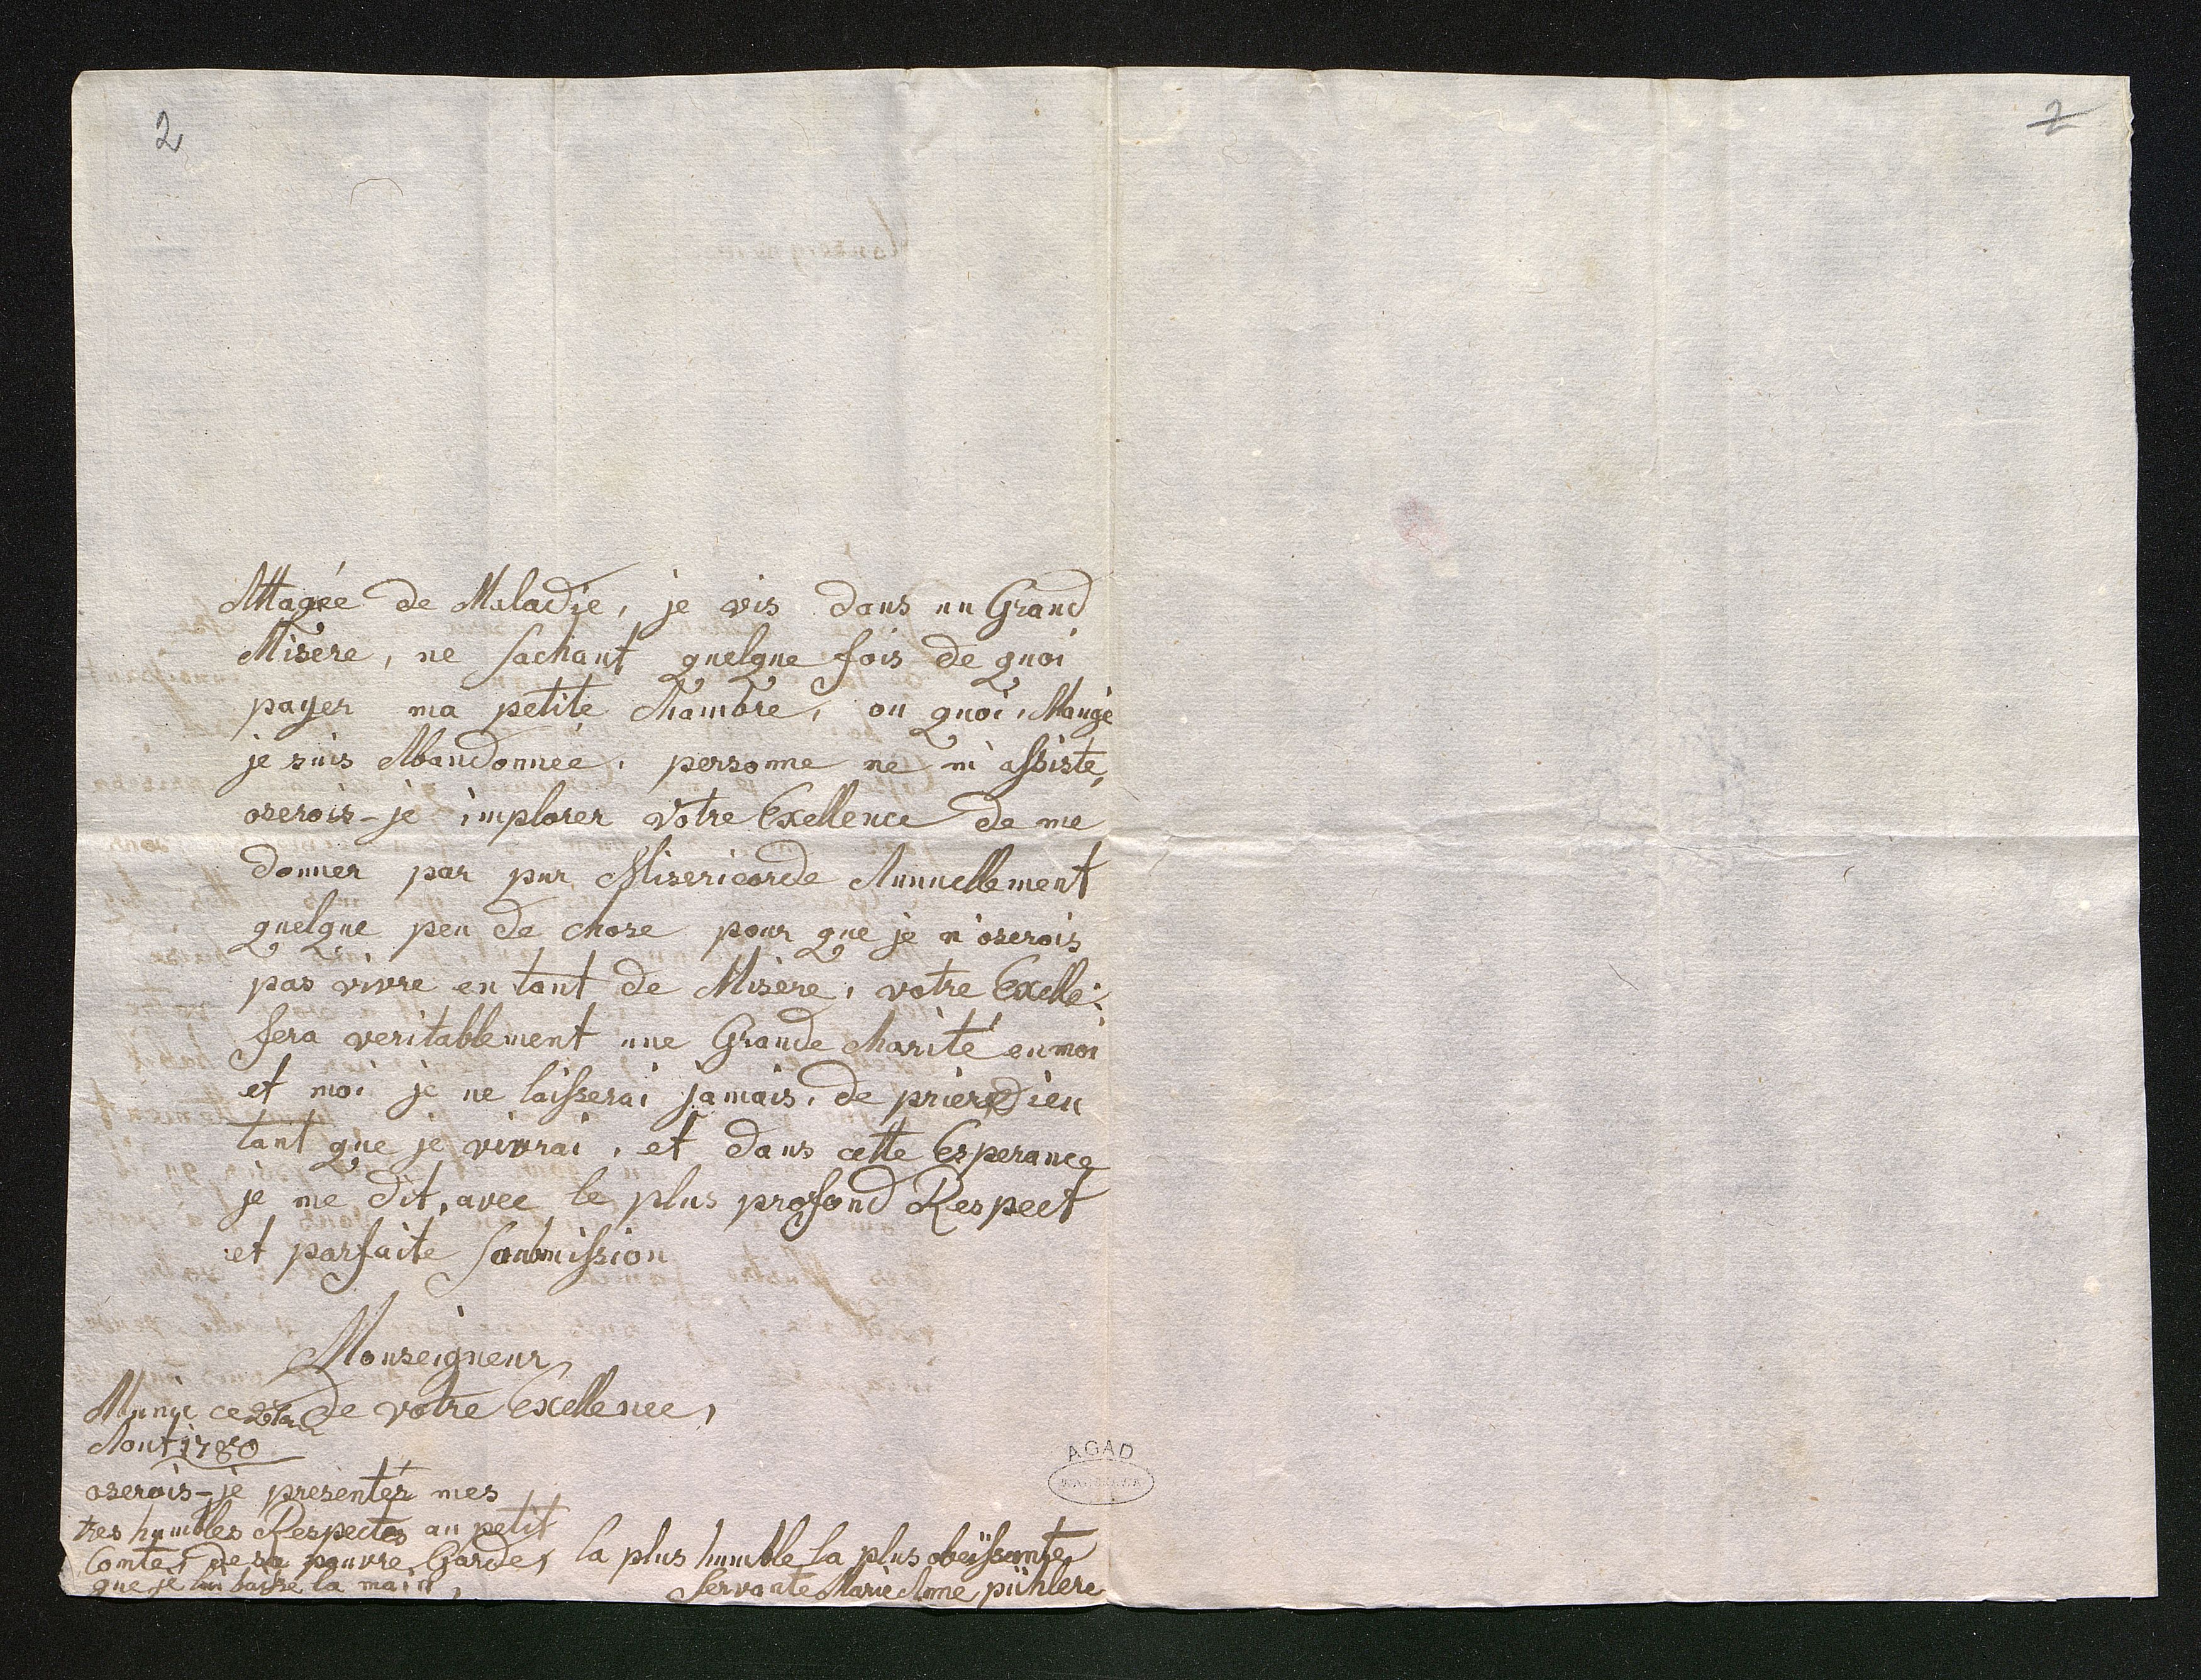 2
2
Attaqée de Maladie, je vis dans un Grand
Misère, ne sachant quelque fois de quoi
payer ma petite chambre, ou quoi, Mangé
je suis Abandonnée, personne ne m'assiste,
oserois-je implorer votre Exellence de me
donner par pur Misericorde Annuellement
quelque peu de chose pour que je n'oserois
pas vivre en tant de Misère, votre Exelle:
fera veritablement une Grande charité en moi
et moi je ne laisserai jamais, de prier Dieu
tant que je vivrai, et dans cette Esperance
je me dit, avec le plus profond Respect
et parfaite Soubmission
Monseigneur
ce de votre Exellence,
Aout 1780
oserois-je presentér mes
tres humbles Respectes au petit
Comte, de sa pauvre Garde,
que je lui baise la main,
la plus humble la plus obeïssante
Servante Marie Anne pühlere
AGAD